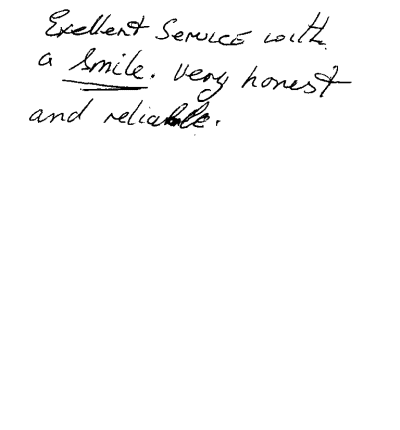 Exellent Service with
a Smile. Very honest
and reliable.